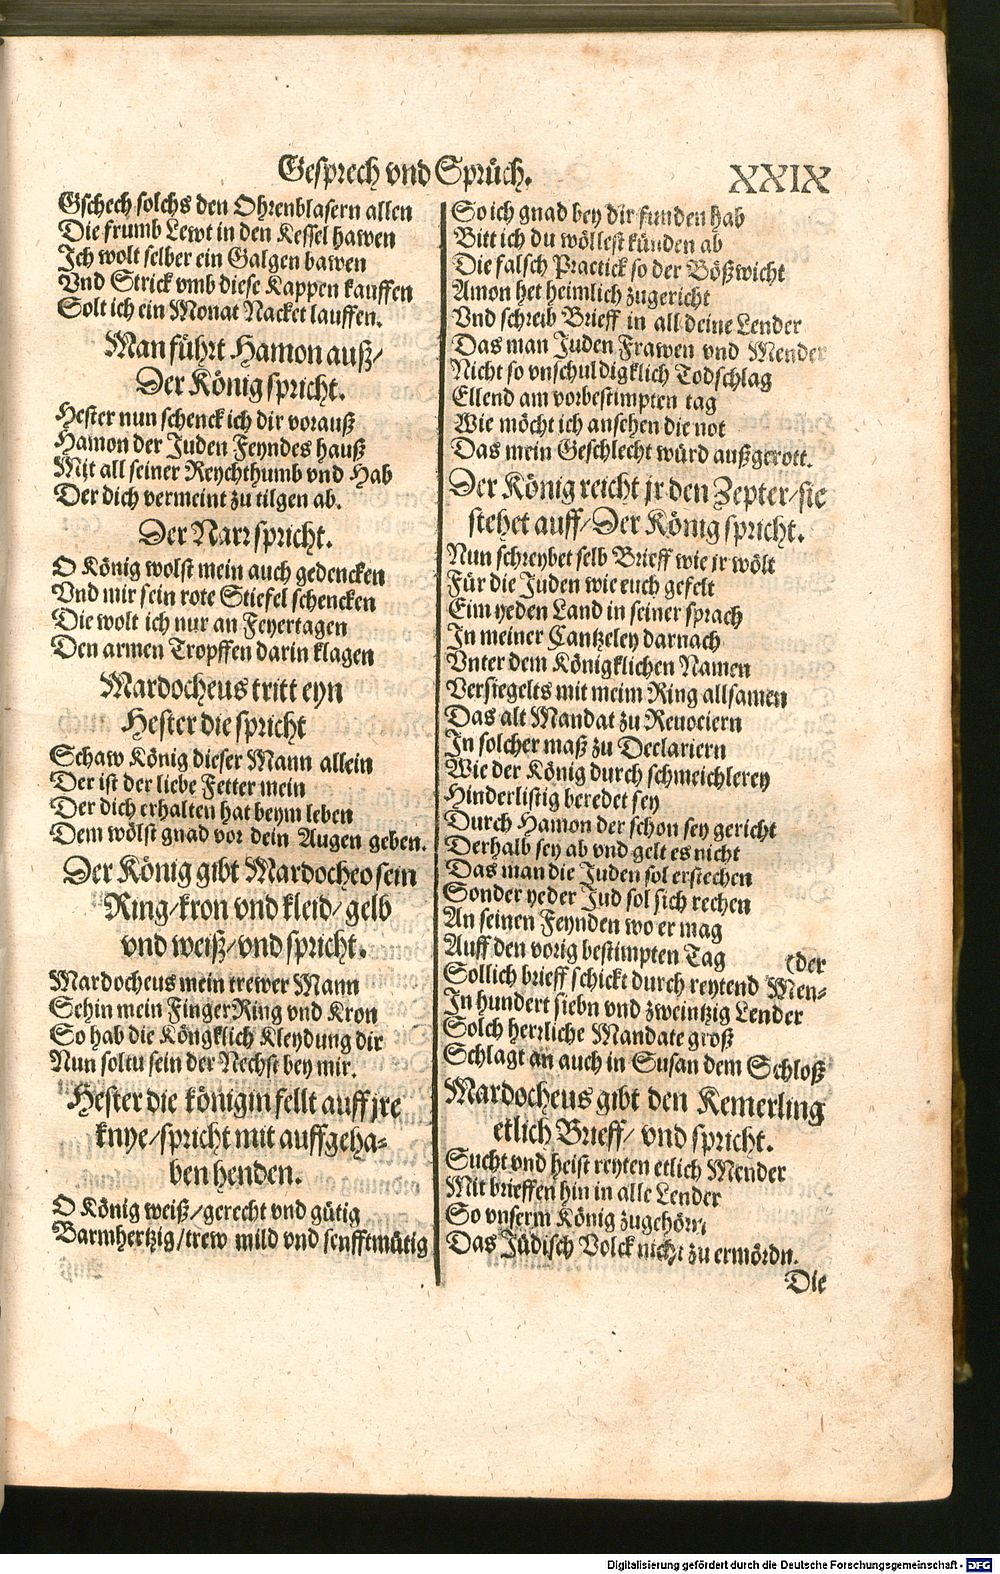 Gesprech vnd Sprüch.
XXIX
Gschech solchs den Ohrenblasern allen
Die frumb Lewt in den Kessel hawen
Ich wolt selber ein Galgen bawen
Vnd Strick vmb diese Kappen kauffen
Solt ich ein Monat Nacket lauffen.
Man führt Hamon auß/
Der König spricht.
Hester nun schenck ich dir vorauß
Hamon der Juden Feyndes hauß
Mit all seiner Reychthumb vnd Hab
Der dich vermeint zu tilgen ab.
Der Narr spricht.
O König wolst mein auch gedencken
Vnd mir sein rote Stiefel schencken
Die wolt ich nur an Feyertagen
Den armen Tropffen darin klagen
Mardocheus tritt eyn
Hester die spricht
Schaw König dieser Mann allein
Der ist der liebe Fetter mein
Der dich erhalten hat beym leben
Dem wölst gnad vor dein Augen geben.
Der König gibt Mardocheo sein
Ring/kron vnd kleid/gelb
vnd weiß/vnd spricht.
Mardocheus mein trewer Mann
Sehin mein FingerRing vnd Kron
So hab die Köngklich Kleydung dir
Nun soltu sein der Nechst bey mir.
Hester die königin fellt auff jre
knye/spricht mit auffgeha-
ben henden.
O König weiß/gerecht vnd gütig
Barmhertzig/trew mild vnd senfftmütig
So ich gnad bey dir funden hab
Bitt ich du wöllest künden ab
Die falsch Practick so der Bößwicht
Amon het heimlich zugericht
Vnd schreib Brieff in all deine Lender
Das man Juden Frawen vnd Mender
Nicht so vnschuldigklich Todschlag
Ellend am vorbestimpten tag
Wie möcht ich ansehen die not
Das mein Geschlecht würd außgerott.
Der König reicht jr den Zepter/sie
stehet auff/Der König spricht.
Nun schreybet selb Brieff wie jr wölt
Für die Juden wie euch gefelt
Eim yeden Land in seiner sprach
In meiner Cantzeley darnach
Vnter dem Königklichen Namen
Versiegelts mit meim Ring allsamen
Das alt Mandat zu Reuociern
In solcher maß zu Declariern
Wie der König durch schmeichlerey
Hinderlistig beredet sey
Durch Hamon der schon sey gericht
Derhalb sey ab vnd gelt es nicht
Das man die Juden sol erstechen
Sonder yeder Jud sol sich rechen
An seinen Feynden wo er mag
Auff den vorig bestimpten Tag (der
Sollich brieff schickt durch reytend Men-
In hundert siebn vnd zweintzig Lender
Solch herrliche Mandate groß
Schlagt an auch in Susan dem Schloß
Mardocheus gibt den Kemerling
etlich Brieff/ vnd spricht.
Sucht vnd heist reyten etlich Mender
Mit brieffen hin in alle Lender
So vnserm König zugehörn
Das Jüdisch Volck nicht zu ermördn.
Die
Digitalisierung gefördert durch die Deutsche Forschungsgemeinschaft - DFG